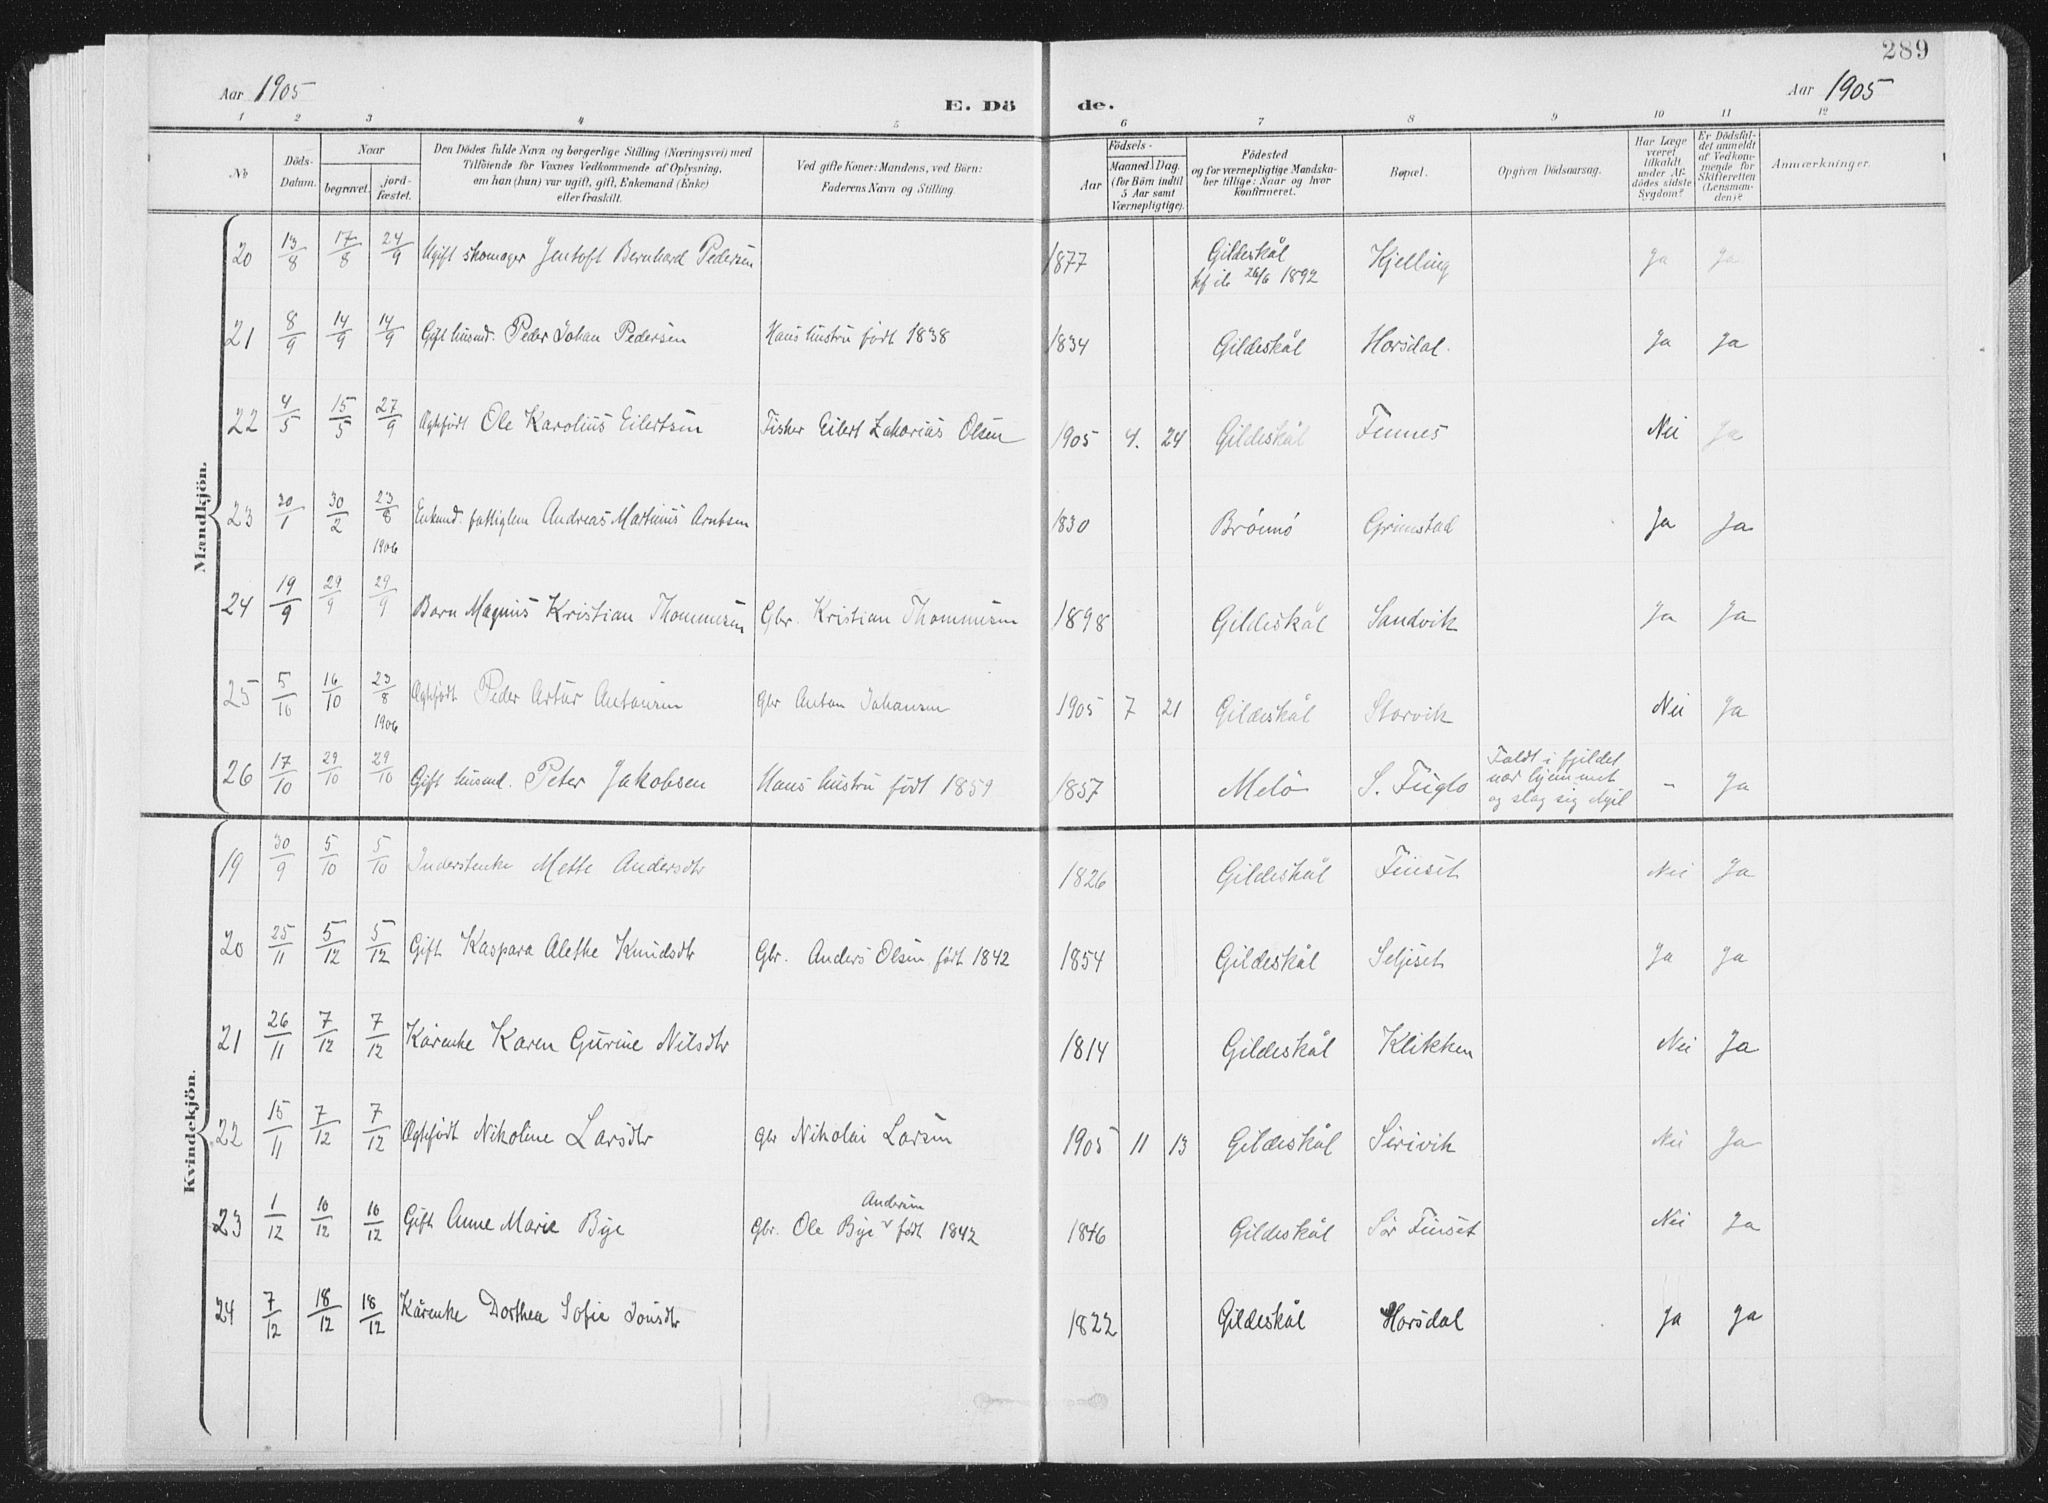 289
Aar 1905
E. Dö de.
Aar 1905
1 2 3 4 5 6 7 8 9 10 11 12
No
Döds-Datum.
Naar
begravet.
jord-fæstet.
Den Dödes fulde Navn og borgerlige Stilling (Næringsvei) med
Tilföiende for Voxnes Vedkommende af Oplysning,
om han (hun) var ugift, gift, Enkemand (Enke)
eller fraskilt.
Ved gifte Koner: Mandens, ved Börn:
Faderens Navn og Stilling.
Födsels-
Aar
Maaned. Dag.
(for Börn indtil
5 Aar samt
Værnepligtige).
Födested
og for værnepligtige Mandska-
ber tillige: Naar og hvor
konfirmeret.
Bopæl.
Opgiven Dödsaarsag.
Har Læge
været
tilkaldt
under Af-
dödes sidste
Sygdom?
Er Dödsfal-
det anmeldt
af Vedkom-
mende for
Skifteretten
(Lensman-
den)?
Anmærkninger.
Mandkjön.
20 13/8 17/8 24/9 Ugift skomager Jentoft Bernhard Pedersen 1877 Gildeskål Kjelling Ja Ja
26/6 1892
21 8/9 14/9 14/9 Gift husmd. Peder Johan Pedersen Hans hustru født 1838 1834 Gildeskål Horsdal. Ja Ja
22 4/5 15/5 27/9 Ægtefødt Ole Karolius Eilertsen Fisker Eilert Zakarias Olsen 1905 4. 24 Gildeskål Finnes Nei Ja
23 20/1 30/2 23/8 Enkemd. fattiglem Andreas Martinus Arntsen 1830 Brønnø Grimstad Ja Ja
1906
24 19/9 29/9 29/9 Barn Magnus Kristian Thommesen Gbr. Kristian Thommesen 1898 Gildeskål Sandvik Ja Ja
25 5/10 16/10 23/8 Ægtefødt Peder Artur Antonsen Gbr Anton Johansen 1905 7 21 Gildeskål Storvik Nei Ja
1906
26 17/10 29/10 29/10 Gift husmd. Peter Jakobsen Hans hustru født 1859 1857 Melö S. Fuglø Faldt i fjeldet
nær hjemmet
og slog sig ihjel - Ja
Kvindekjön.
19 30/9 5/10 5/10 Inderstenke Mette Andersdtr 1826 Gildeskål Finset Nei Ja
20 25/11 5/12 5/12 Gift Kaspara Alethe Knudsdtr Gbr. Anders Olsen født 1842 1854 Gildeskål Seljeset Ja Ja
21 26/11 7/12 7/12 Kårenke Karen Gurine Nilsdtr 1814 Gildeskål Klikken Nei Ja
22 15/11 7/12 7/12 Ægtefødt Nikoline Larsdtr Gbr Nikolai Larsen 1905 11 13 Gildeskål Sirivik Nei Ja
Andersen
23 1/12 10/12 10/12 Gift Anne Marie Bye Gbr. Ole Bye v født 1842 1846 Gildeskål Sør Finset Nei Ja
24 7/12 18/12 18/12 Kårenke Dorthea Sofie Jonsdtr 1822 Gildeskål Horsdal Ja Ja